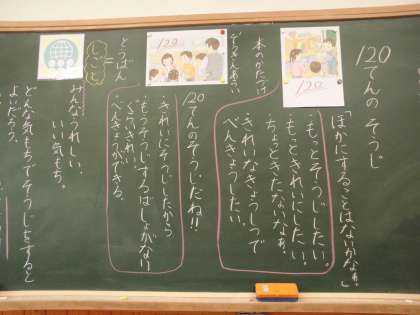 120てんの そうじ
「ほかにすることはないかなぁ。」
120
・もっとそうじしたい。
・もっときれいにしたい。
・ちょっときたないなぁ。
・きれいなきょうしつで
べんきょうしたい。
本のかたづけ
120
120てんのそうじだね!!
きれいにそうじしたから
もうそうじするばしょがない
くらいきれい。
べんきょうができる。
とうばん
=
しごと
みんなうれしい。
いい気もち。
どんな気もちでそうじをすると
よいだろう。